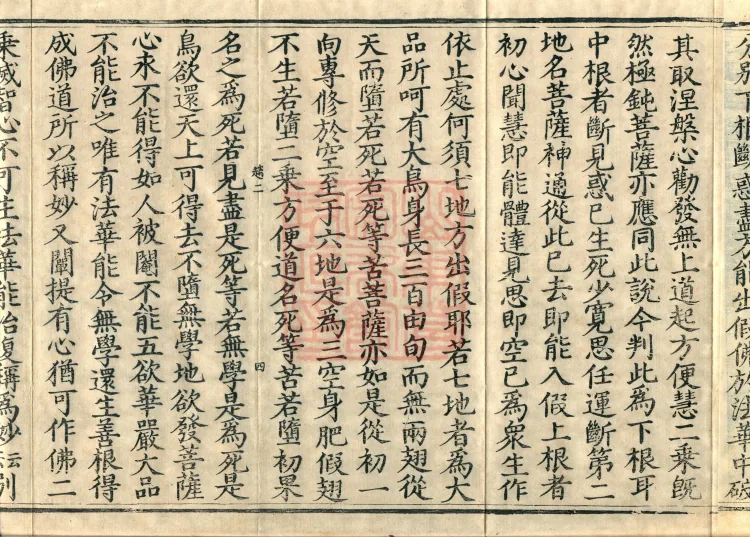 分別下根斷惑盡方能出假佛於法華中破
其取涅槃心勸發無上道起方便慧二乗旣
然極鈍菩薩亦應同此說今判此為下根耳
中根者斷見惑已生死少寬思任運斷第二
地名菩薩神通從此已去即能入假上根者
初心聞慧即能體達見思即空已為衆生作
依止處何須七地方出假耶若七地者為大
品所呵有大鳥身長三百由旬而無兩翅從
天而墮若死若死等苦菩薩亦如是從初一
向專修於空至于六地是為三空身肥假翅
不生若墮二乗方便道名死等苦若墮初果
趙二
四
名之為死若見盡是死等若無學是為死是
鳥欲還天上可得去不墮無學地欲發菩薩
心永不能得如人被閹不能五欲華嚴大品
不能治之唯有法華能令無學還生善根得
成佛道所以稱妙又闡提有心猶可作佛二
乗滅智心不可生法華能治復稱為妙云云別